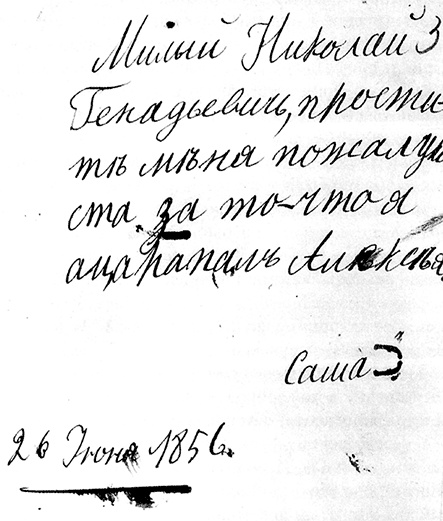 Милый Николай
Генадьевичь, прости-
тѣ мѣня пожалуй
ста за то-что я
ацарапалъ Алѣксѣя
Саша
26 Июня 1856.